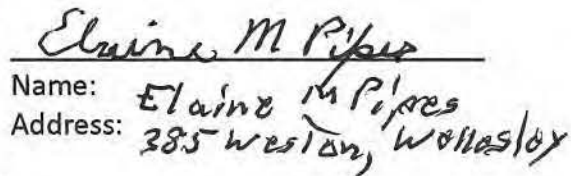 Elaine M Pipes
Name: Elaine M Pipes
Address: 385 Weston, Wellesley